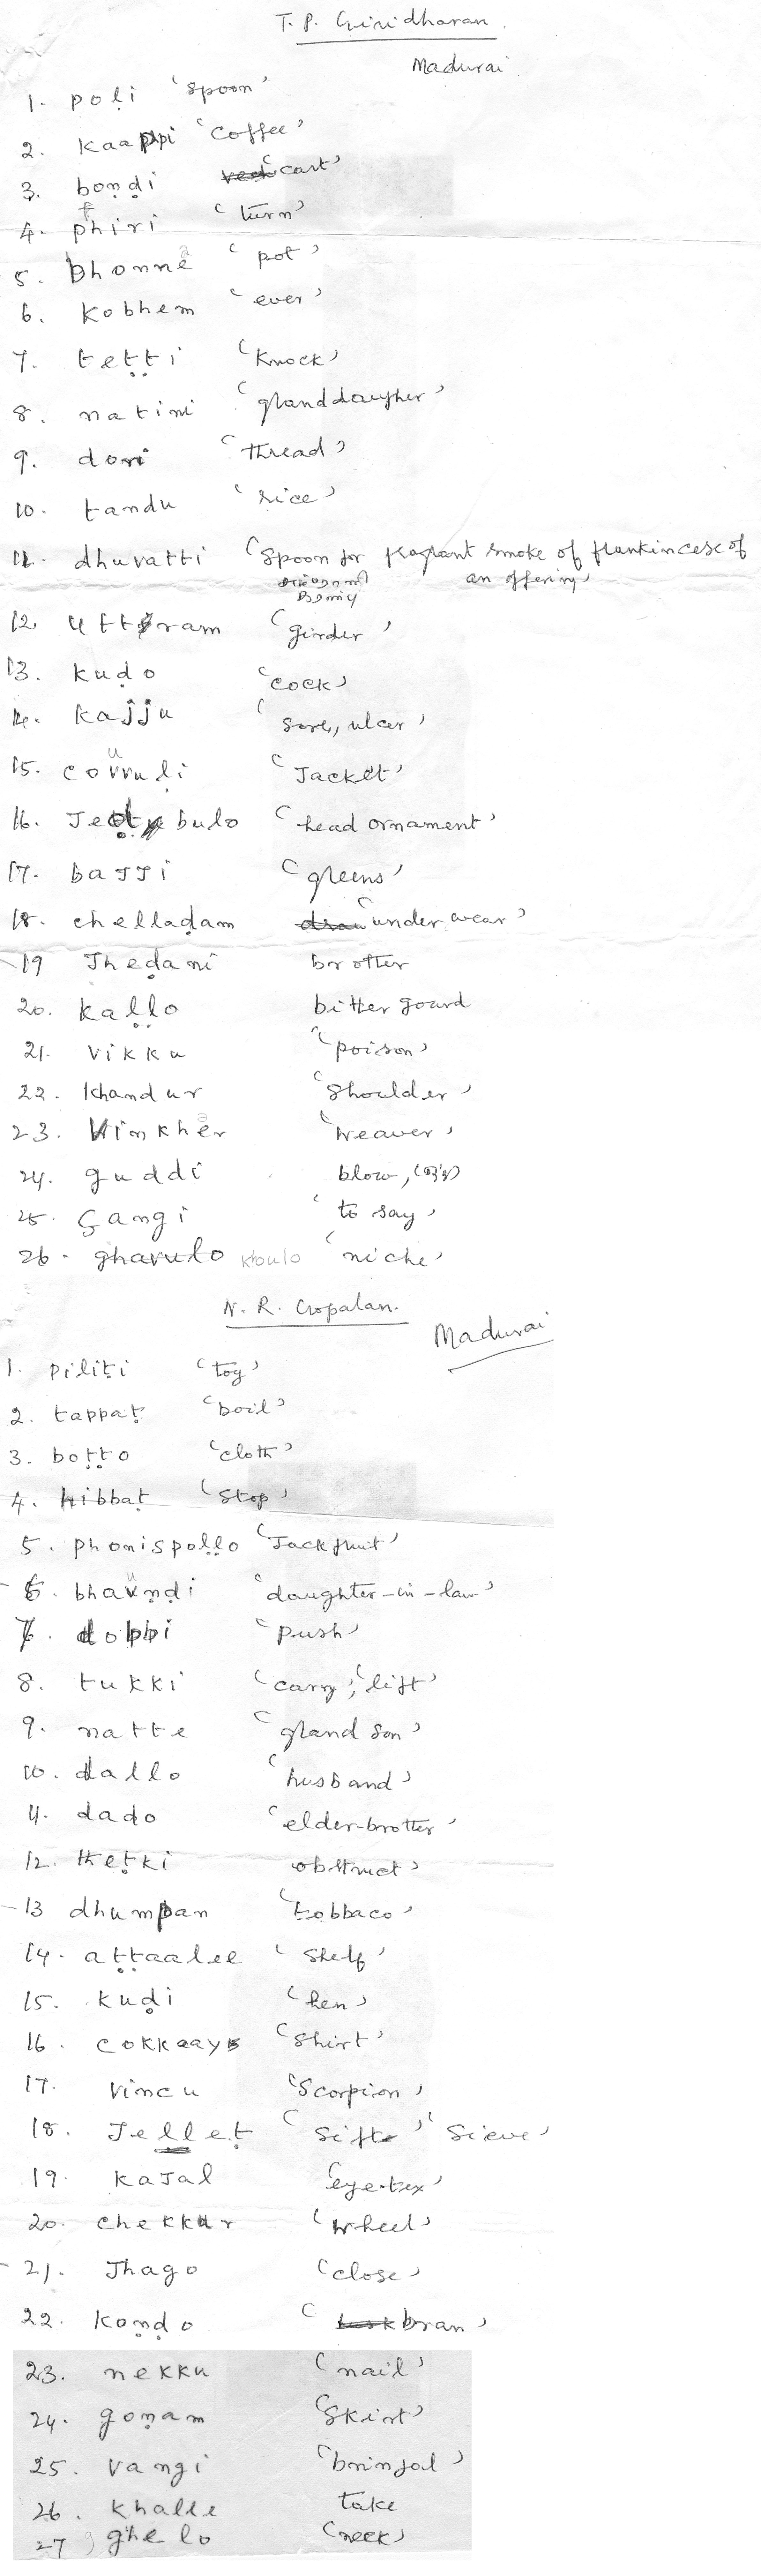 T. P. Giridharan.
Madurai
1. poḷi 'spoon'
2. kaappi 'coffee'
3. boṇḍi 'cart'
4. phiri 'turn'
5. bhonne 'pot'
6. kobhem 'ever'
7. teṭṭi 'knock'
8. natini 'granddaugher'
9. dori 'thread'
10. tandu 'rice'
11. dhuvatti 'spoon for fragrant smoke of frankincese of
an offering'
12. uttiram 'girder'
13. kuḍo 'cock'
14. kajju 'sore, ulcer'
15. covvuḷi 'Jacket'
16. bulo 'head ornament'
17. baJJi 'greens'
18. chellaḍam 'under wear'
19 Jheḍani brother
20. kaḷḷo bitter gourd
21. vikku 'poison'
22. khandur 'shoulder'
23. Vinkher 'weaver'
24. guddi blow,
25. çangi 'to say'
26. ghavulo khoulo 'niche'
N. R. Gopalan.
Madurai
1. piliṭi 'toy'
2. tappaṭ 'boil'
3. boṭṭo 'cloth'
4. hibbaṭ 'stop'
5. phonispoḷḷo 'Jack fruit'
6. bhauṇḍi 'daughter-in-law'
7. dobbi 'push'
8. tukki 'carry', 'lift'
9. natte 'grand son'
10. dallo 'husband'
11. daḍo 'elder-brother'
12. theṭki obstruct'
13 dhumpan 'tobbaco'
14. aṭṭaalee 'shelf'
15. kuḍi 'hen'
16. cokkaay 'shirt'
17. vincu 'scorpion'
18. Jelleṭ 'sift' 'sieve'
19. kaJal 'eye-tex'
20. chekkur 'wheel'
21. Jhago 'close'
22. koṇḍo 'bran'
23. nekku 'nail'
24. goṇam 'skirt'
25. vangi 'brinjal'
26. khalle take
27 ghelo 'neck'